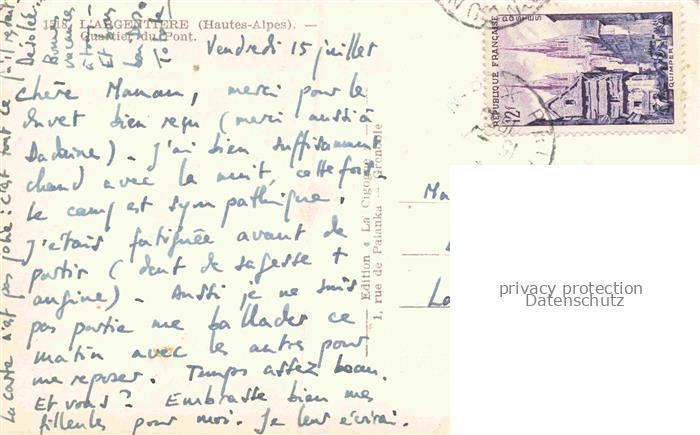 1518. L'ARGENTIERE (Hautes-Alpes). —
Quartier du Pont.
Vendredi 15 juillet
Chère Maman, merci pour le
duvet bien reçu (merci aussi à
). J'ai bien suffisamment
chaud avec la nuit, cette fois,
le camp est sympathique.
J'étais fatiguée avant de
partir (dent de sagesse +
angine). Aussi je ne suis
pas partie me ballader ce
matin avec les autres pour
me reposer. Temps assez beau.
Et vous ? Embrasse bien mes
filleules pour moi. Je leur écrirai.
La carte n'est pas jolie : c'est tout ce qu'il restait
Désolée.
Bonnes
vacances
à
Et
Edition « La Cigogne »
1, rue de Palanka — Grenoble
REPUBLIQUE FRANÇAISE
POSTES
12f
QUIMPER
Ma
La
privacy protection
Datenschutz